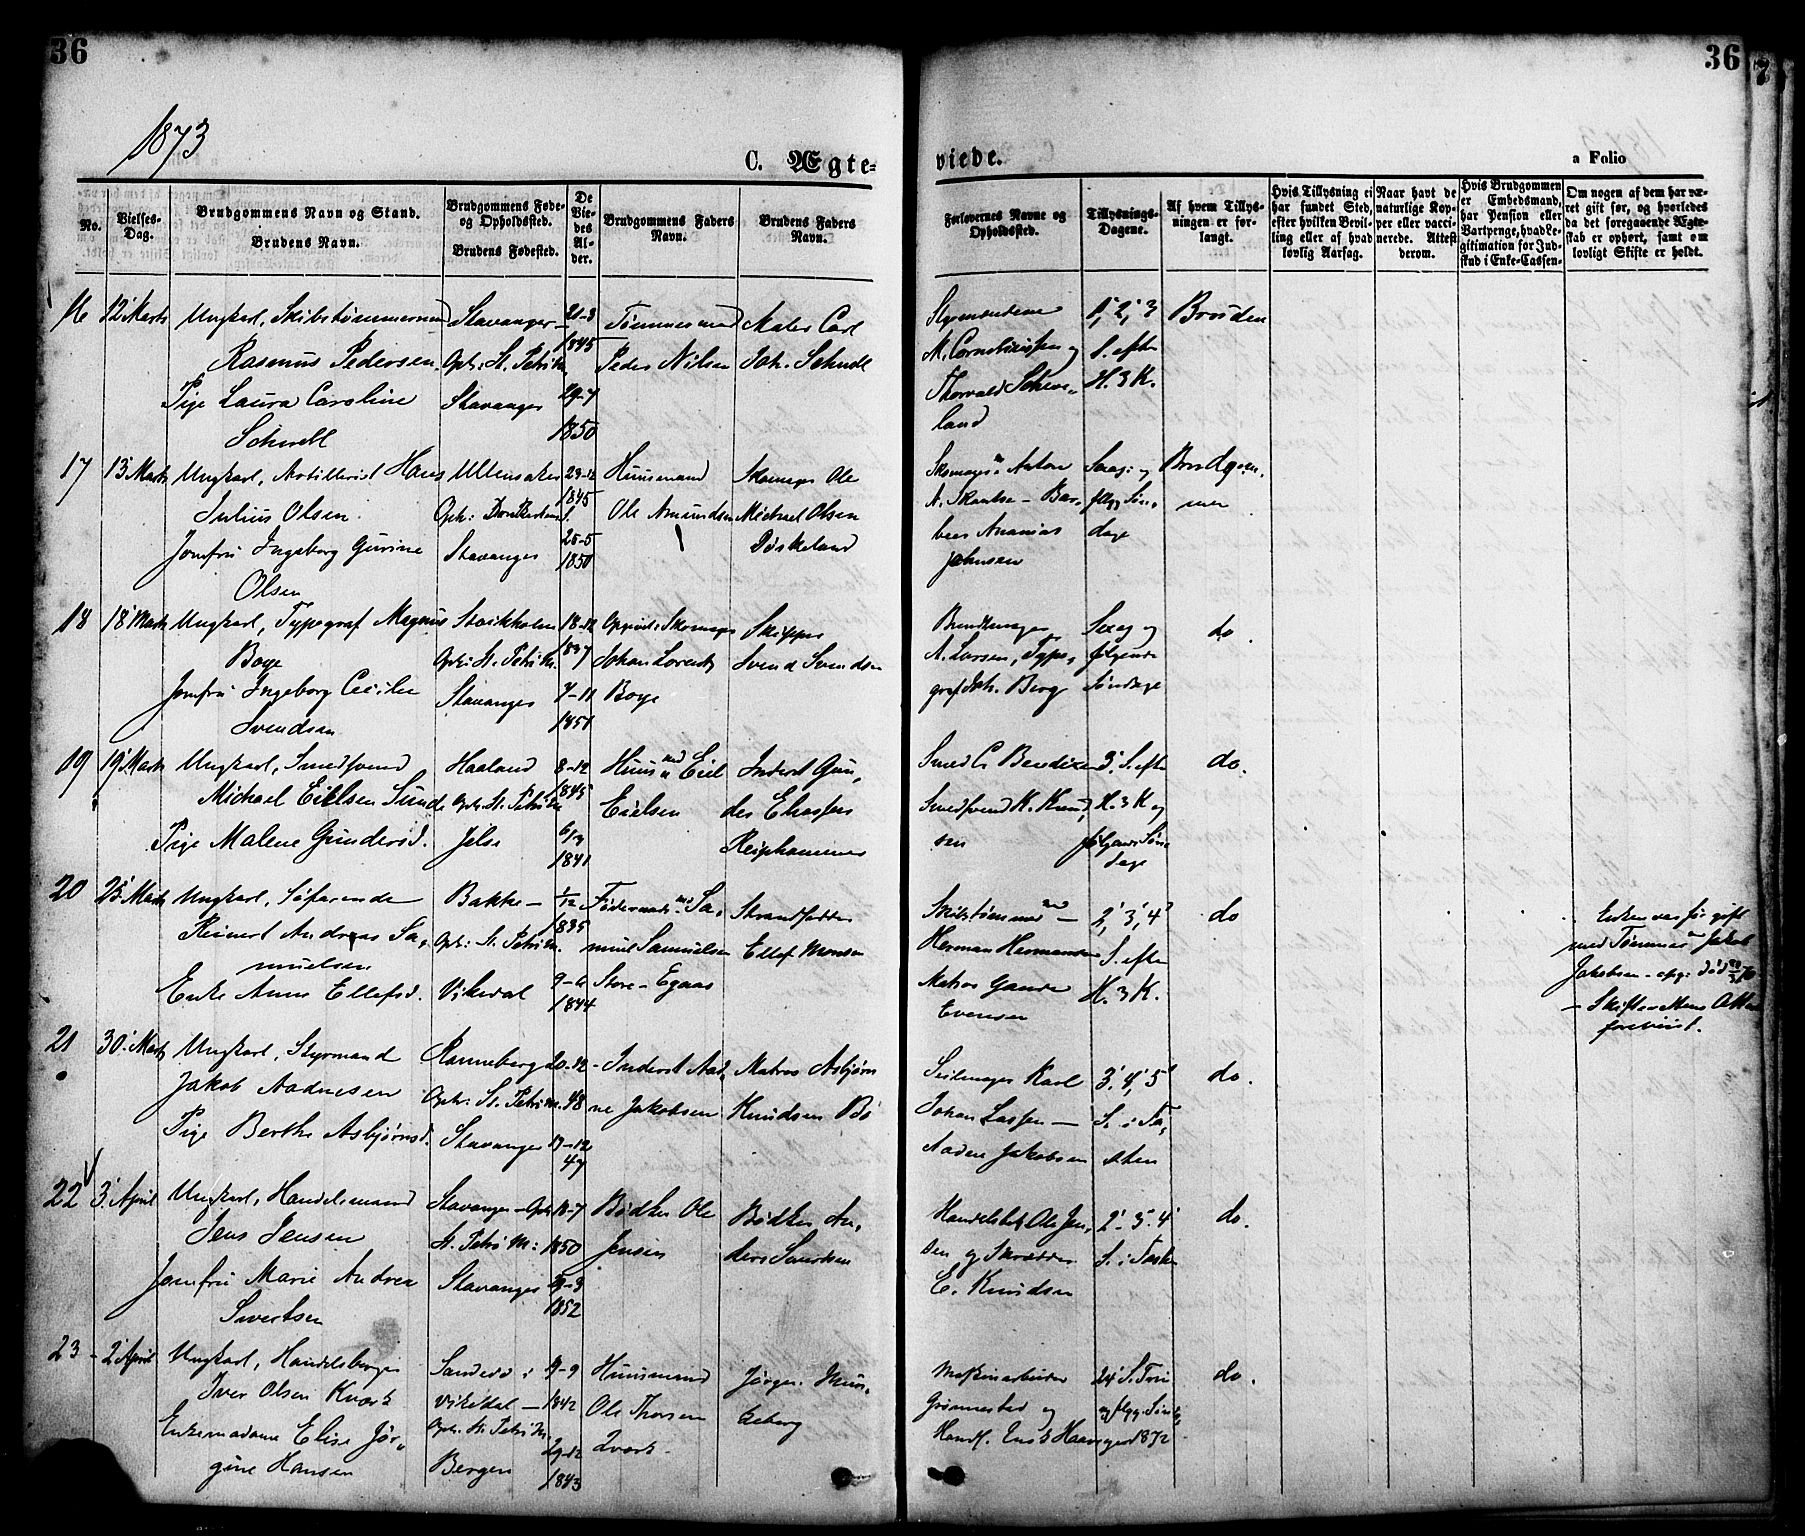 36
36
7
1873
C. Ægte-
viede.
a Folio
No.
Vielses-
Dag.
Brudgommens Navn og Stand.
Brudens Navn.
Brudgommens Føde-
og Opholdssted.
Brudens Fødested.
De
Vie-
des
Al-
der.
Brudgommens Faders
Navn.
Brudens Faders
Navn.
Forlovernes Navne og
Opholdssted.
Tillysnings-
Dagene.
Af hvem Tillys-
ningen er for-
langt.
Hvis Tillysning ei
har fundet Sted,
efter hvilken Bevil-
ling eller af hvad
lovlig Aarsag.
Naar havt de
naturlige Kop-
per eller vacci-
nerede. Attest
derom.
Hvis Brudgommen
er Embedsmand,
har Pension eller
Vartpenge, hvad Le-
gitimation for Ind-
skud i Enke-Cassen-
Om nogen af dem har væ-
ret gift før, og hvorledes
da det foregaaende Ægte-
skab er ophørt, samt om
lovligt Skifte er holdt.
16
12' Marts
Ungkarl, Skibstømmermand
Rasmus Pedersen
Pige Laura Caroline
Schwell
Stavanger
Oph: St. Petri M.
Stavanger
21-3
1845
29-7
1850
Tømmermand
Peder Nilsen
Maler Carl
Joh. Schwell
Styrmændene
M. Corneliussen og
Thorvald Scheve-
land
1', 2', 3
S. efter
H. 3 K.
Bruden
17
13' Marts
Ungkarl, Artillerist Hans
Julius Olsen
Jomfru Ingeborg Gurine
Olsen
Ullensaker
Oph:
Stavanger
23-12
1845
25-5
1850
Huusmand
Ole Amundsen
Skomager Ole
Michael Olsen
Skomager Anton
Ananias
Johnsen
Sexag: og
følgg Søn-
dage
Brudgom-
men
18
18' Marts
Ungkarl, Typograf Magnus
Boye
Jomfru Ingeborg Cecilie
Svendsen
Stockholm
Oph: St. Petri M.
Stavanger
18-12
1837
7-11
1851
Skomager
Johan Lorentz
Boye
Skipper
Svend Svendsen
A. Larsen, Typo-
graf Joh. Berg
Sexag og
følgende
Søndage
do
19
19' Marts
Ungkarl, Smedsvend
Michael Eielsen Sunde
Pige Malene Gundersd.
Haaland
Oph: St. Petri M.
Jelse
8-12
1845
1841
Huusmd Eiel
Eielsen
Inderst Gun-
der
Smed C. Bendixen
Smedsvend K. Knud-
sen
3' S. efter
H. 3 K og
følgende Søn-
dage
do.
20
25' Marts
Ungkarl, Søfarende
Reinert Andreas Sa-
muelsen
Enke Anne Ellefsd.
Bakke -
Oph: St. Petri M.
Vikedal
1/12
1835
9-6
1844
Sa-
muel Samuelsen
Store-Egaas
Strandsidder
Ellef Monsen
Skibstømmermd -
Herman Hermansen
Matros Gaude
Evensen
2', 3', 4'
S. efter
H. 3 K.
do
Enken var før gift
med Tømmermd Jakob
Jakobsen
21
30' Marts
Ungkarl, Styrmand
Jakob Aadnesen
Pige Berthe Asbjørnsd.
Ranneberg
Oph: St. Petri M.
Stavanger
20-12
48
13-12
47
Inderst Aad-
ne Jakobsen
Matros Asbjørn
Knudsen Bø
Seilmager Karl
Johan Lassen -
Aadne Jakobsen
3', 4', 5'
S. i Fa-
sten
do.
22
3' April
Ungkarl, Handelsmand
Jens Jensen
Jomfru Marie Andrea
Sivertsen
Stavanger - Oph:
St. Petri M:
Stavanger
18-7
1850
1852
Bødker Ole
Jensen
Bødker An-
ders Sivertsen
Ole Jen-
sen og Skrædder
E. Knudsen
2'. 3. 4'
S. i Faste
do.
23
2' April
Ungkarl, Handelsborger
Iver Olsen Kvark
Enkemadame Elise Jør-
gine Hansen
Sandeid i
Vikedal -
Oph. St. Petri M.
Bergen
4-9
1842
29-12
1843
Huusmand
Ole Thorsen
Jørgen
Maskinarbeider
Grønnestad og
24' S. Tri
og følgg Sønd.
1872
do.